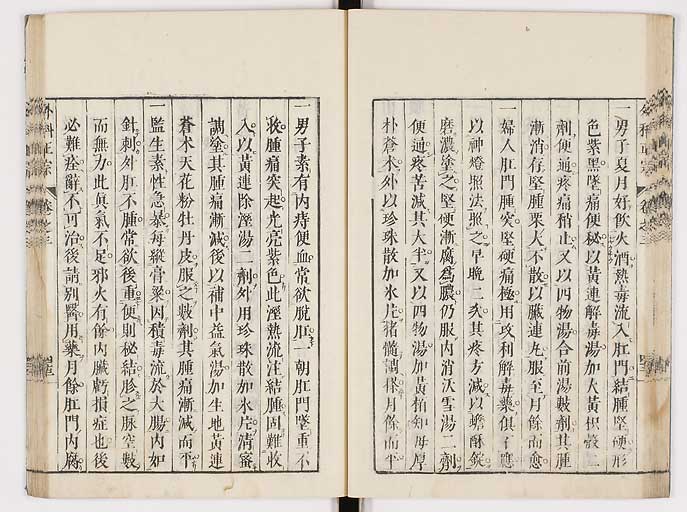 一男子夏月好飲火酒熱毒流入肛門結腫堅硬形
色紫黑墜痛便秘以黄連解毒湯加大黄枳殼二
劑便通疼痛稍止又以四物湯合前湯數劑其腫
漸消存堅腫栗大不散以臟連丸服至月餘而愈
一婦人肛門腫突堅硬痛極用攻利解毒藥俱不應
以神燈照法照之早晚二次其疼方減以蟾酥錠
磨濃塗之堅硬漸腐爲膿仍服内消沃雪湯二劑
便通疼苦減其大半又以四物湯加黄柏知母厚
朴蒼术外以珍珠散加氷片猪髓調搽月餘而平
外科正宗 卷之三
一男子素有内痔便血常欲脱肛一朝肛門墜重不
收腫痛突起光亮紫色此溼熱流注結腫固難收
入以黄連除溼湯二劑外用珍珠散加氷片清蜜
調塗其腫痛漸減後以補中益氣湯加生地黄連
蒼术天花粉牡丹皮服之數劑其腫痛漸減而平
一監生素性急暴每縱膏粱因積毒流於大腸内如
針刺外肛不腫常欲後重便則秘結胗之脉空數
而無力此眞氣不足邪火有餘内臟虧損症也後
必難痊辭不可治後請别醫用藥月餘肛門内腐
外科正宗 卷之三